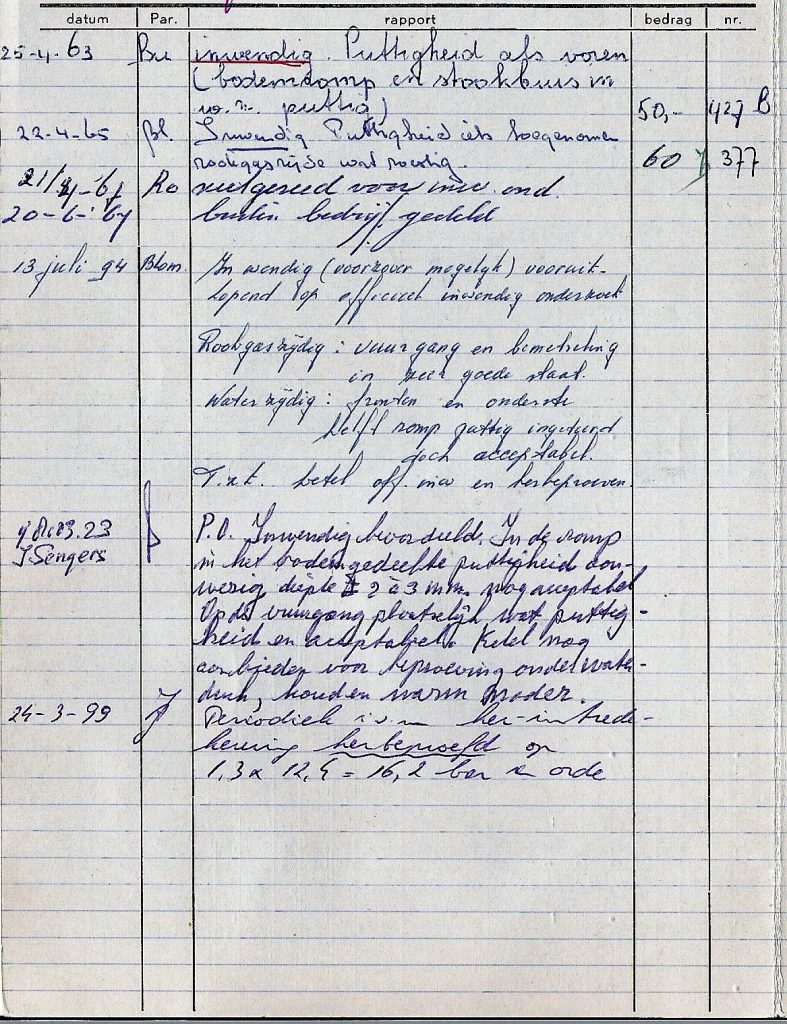 datum Par. rapport bedrag nr.
25-4-63 Bu inwendig. Puttigheid als voren
(bodemromp en stookbuis in
w.r. puttig) 50,- 427 B
22-4-65 Bl. Inwendig Puttigheid iets toegenomen
rookgaszijde wat roestig. 60 377
21/4-67 Ro niet gereed voor inw. ond.
20-6-'67 buiten bedrijf gesteld
13 juli 94 Blom. Inwendig (voorzover mogelijk) vooruit-
lopend op officieel inwendig onderzoek
Rookgaszijdig: vuurgang en bemetseling
in zeer goede staat.
Waterzijdig: fronten en onderste
helft romp puttig ingeteerd
doch acceptabel.
T.z.t. ketel off. inw en herbeproeven.
23
J Sengers P.O. Inwendig beoordeeld. In de romp
in het bodemgedeelte puttigheid aan-
wezig diepte ± 2 à 3 mm. nog acceptabel
Op de vuurgang plaatselijk wat puttig-
heid en acceptabel. Ketel nog
aanbieden voor beproeving onder water-
druk, houden warm water.
24-3-99 Periodiek i.v.m her-intrede-
keuring herbeproefd op
1,3 x 12,4 = 16,2 bar in orde